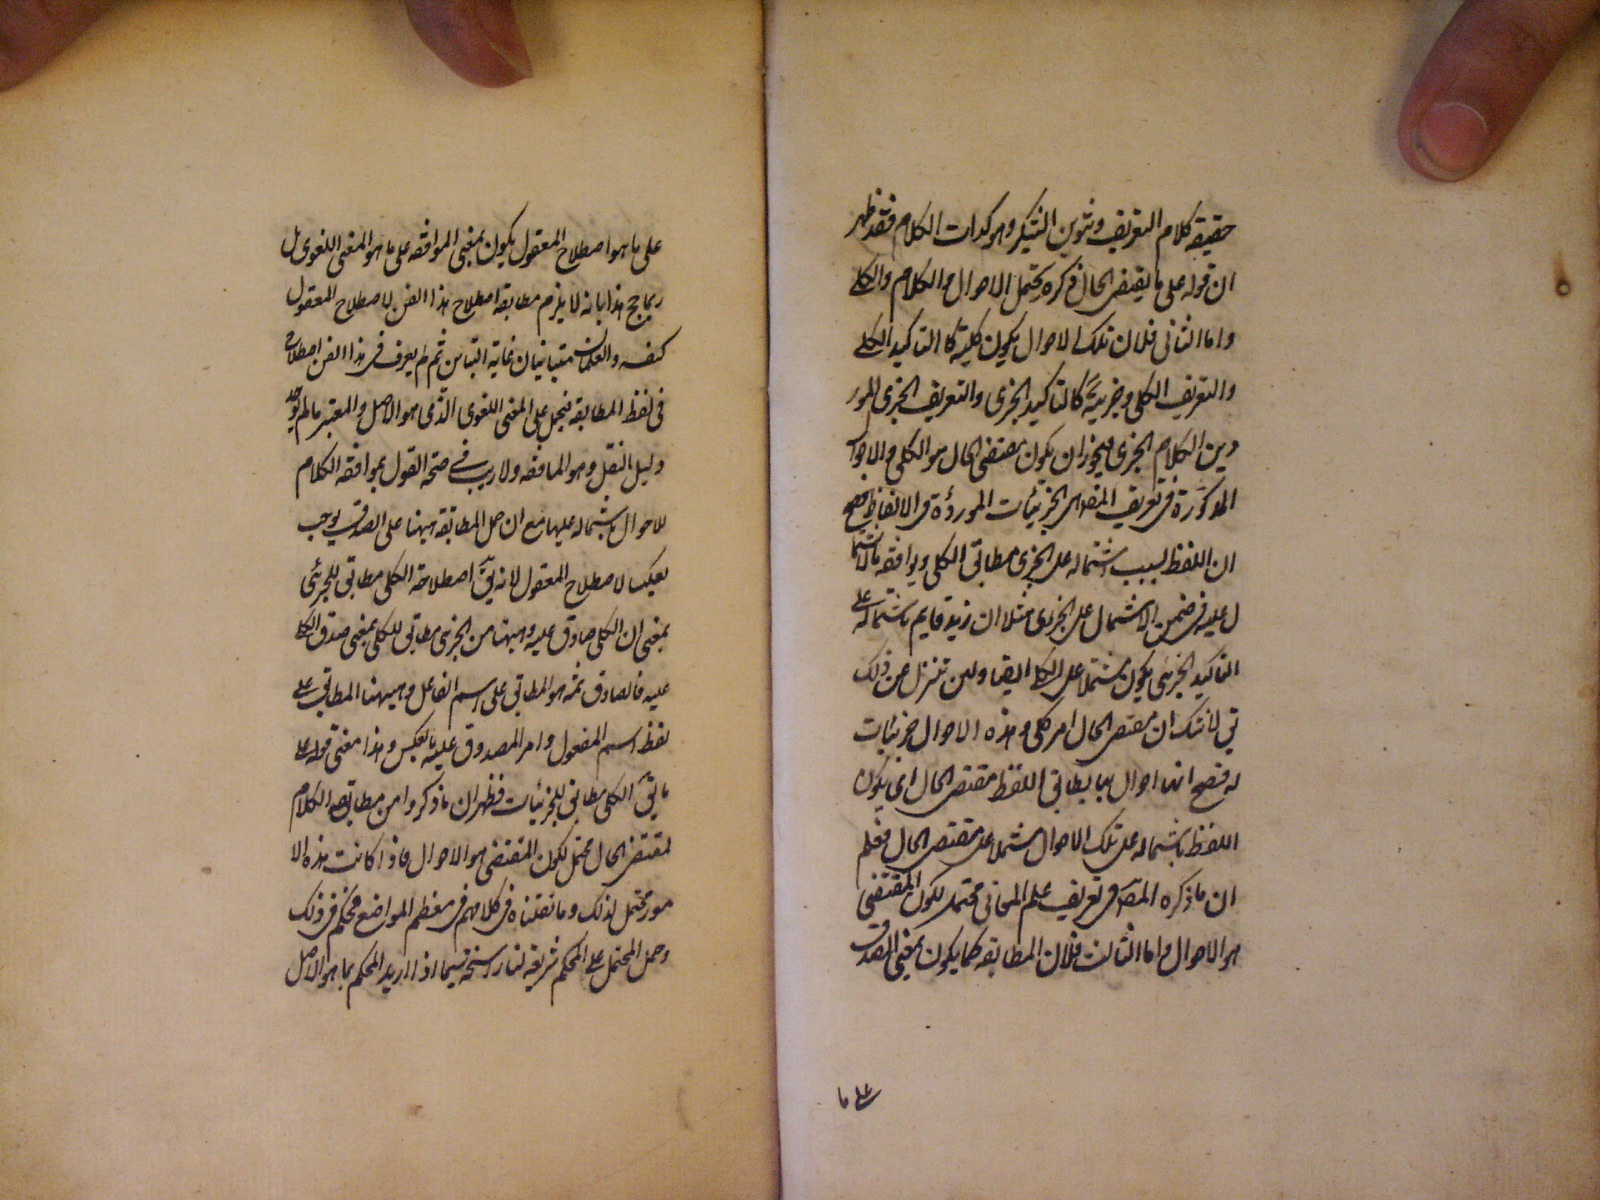 حقيقة كلام التعريف وتنوين التنكير وهو كذات الكلام فقد ظهر
ان قوله على ما يقتضى الحال ذكره يحتمل الاحوال والكلام والكلى
واما الثانى فلان تلك الاحوال يكون كلية كالتاكيد الكلى
والتعريف الكلى وجزئية كالتاكيد الجزى والتعريف الجزى المور
دين الكلام الجزى فيجوز ان يكون مقتضى الحال هو الكلى والاحوال
المذكورة فى تعريف المصـ الجزئيات الموردة فى الالفاظ فصح
ان اللفظ بسبب اشتماله على الجزى مطابق الكلى ويوافقه بالاشتما
ل عليه فى ضمن الاشتمال على الجزى مثلا ان زيد قايم باشتماله على
التاكيد الجزئى يكون مشتملا على الكلى ايضا ولئن تنزل عن ذلك
فى لا شك ان مقتضى الحال امر كلى وهذه الاحوال جزئيات
له فصح انها احوال بها يطابق اللفظ مقتضى الحال اى يكون
اللفظ باشتماله على تلك الاحوال مشتملا على مقتضى الحال فعلم
ان ما ذكره المصـ فى تعريف علم المعانى محتمل لكون المقتضى
هو الاحوال واما الثالث فلان المطابقة كما يكون بمعنى الصدق
على ما
على ما هو اصطلاح المعقول يكون بمعنى الموافقة على ما هو المعنى اللغوى بل
ربما يرجح هذا بانه لا يلزم مطابقة اصطلاح هذا الفن لاصطلاح المعقول
كيف والعلمان متباينان غاية التباين ثم لم يعرف فى هذا الفن اصطلاح
فى لفظ المطابقة فيحمل على المعنى اللغوى الذى هو الاصل والمعتبر ما لم يوجد
دليل النقل وهو الموافقة ولا ريب فى صحة القول بموافقة الكلام
للاحوال باشتماله عليها مع ان حمل المطابقة ههنا على الصدق يوجب
بعكس لاصطلاح المعقول لانه يق اصطلاحه الكلى مطابق للجزئى
بمعنى ان الكلى صادق عليه وههنا من الجزى مطابق للكلى بمعنى صدق الكلى
عليه فالصادق ثمه هو المطابق على اسم الفاعل وههنا المطابق على
لفظ اسم المفعول وامر المصدوق عليه بالعكس وهذا معنى قوله على
ما يق الكلى مطابق للجزئيات فظهر ان ما ذكروا من مطابقة الكلام
لمقتضى الحال محتمل لكون المقتضى هو الاحوال فاذا كانت هذه الا
مور محتمل لذلك وما نقلناه فى كلامهم فى معظم المواضع محكم فى ذلك
وحمل المحتمل على المحكم شريعة لنا راسخة لاسيما اذا اريد المحكم بما هو الاصل